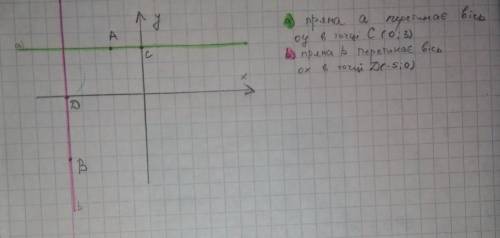 a) пряма a перетинає вісь
oy в точці C (0; 3)
b) пряма b перетинає вісь
ox в точці D(-5; 0)
y
a
A
C
x
D
B
b